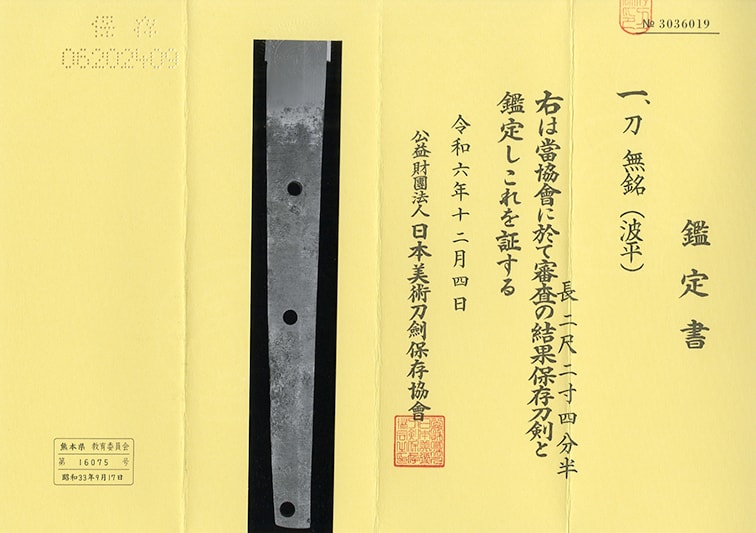 № 3036019
鑑定書
一、刀 無銘（波平）
長二尺二寸四分半
右は當協會に於て審査の結果保存刀剣と
鑑定しこれを証する
令和六年十二月四日
公益財團法人 日本美術刀劍保存協會
保存
06202409
熊本県 教育委員会
第 16075 号
昭和33年9月17日